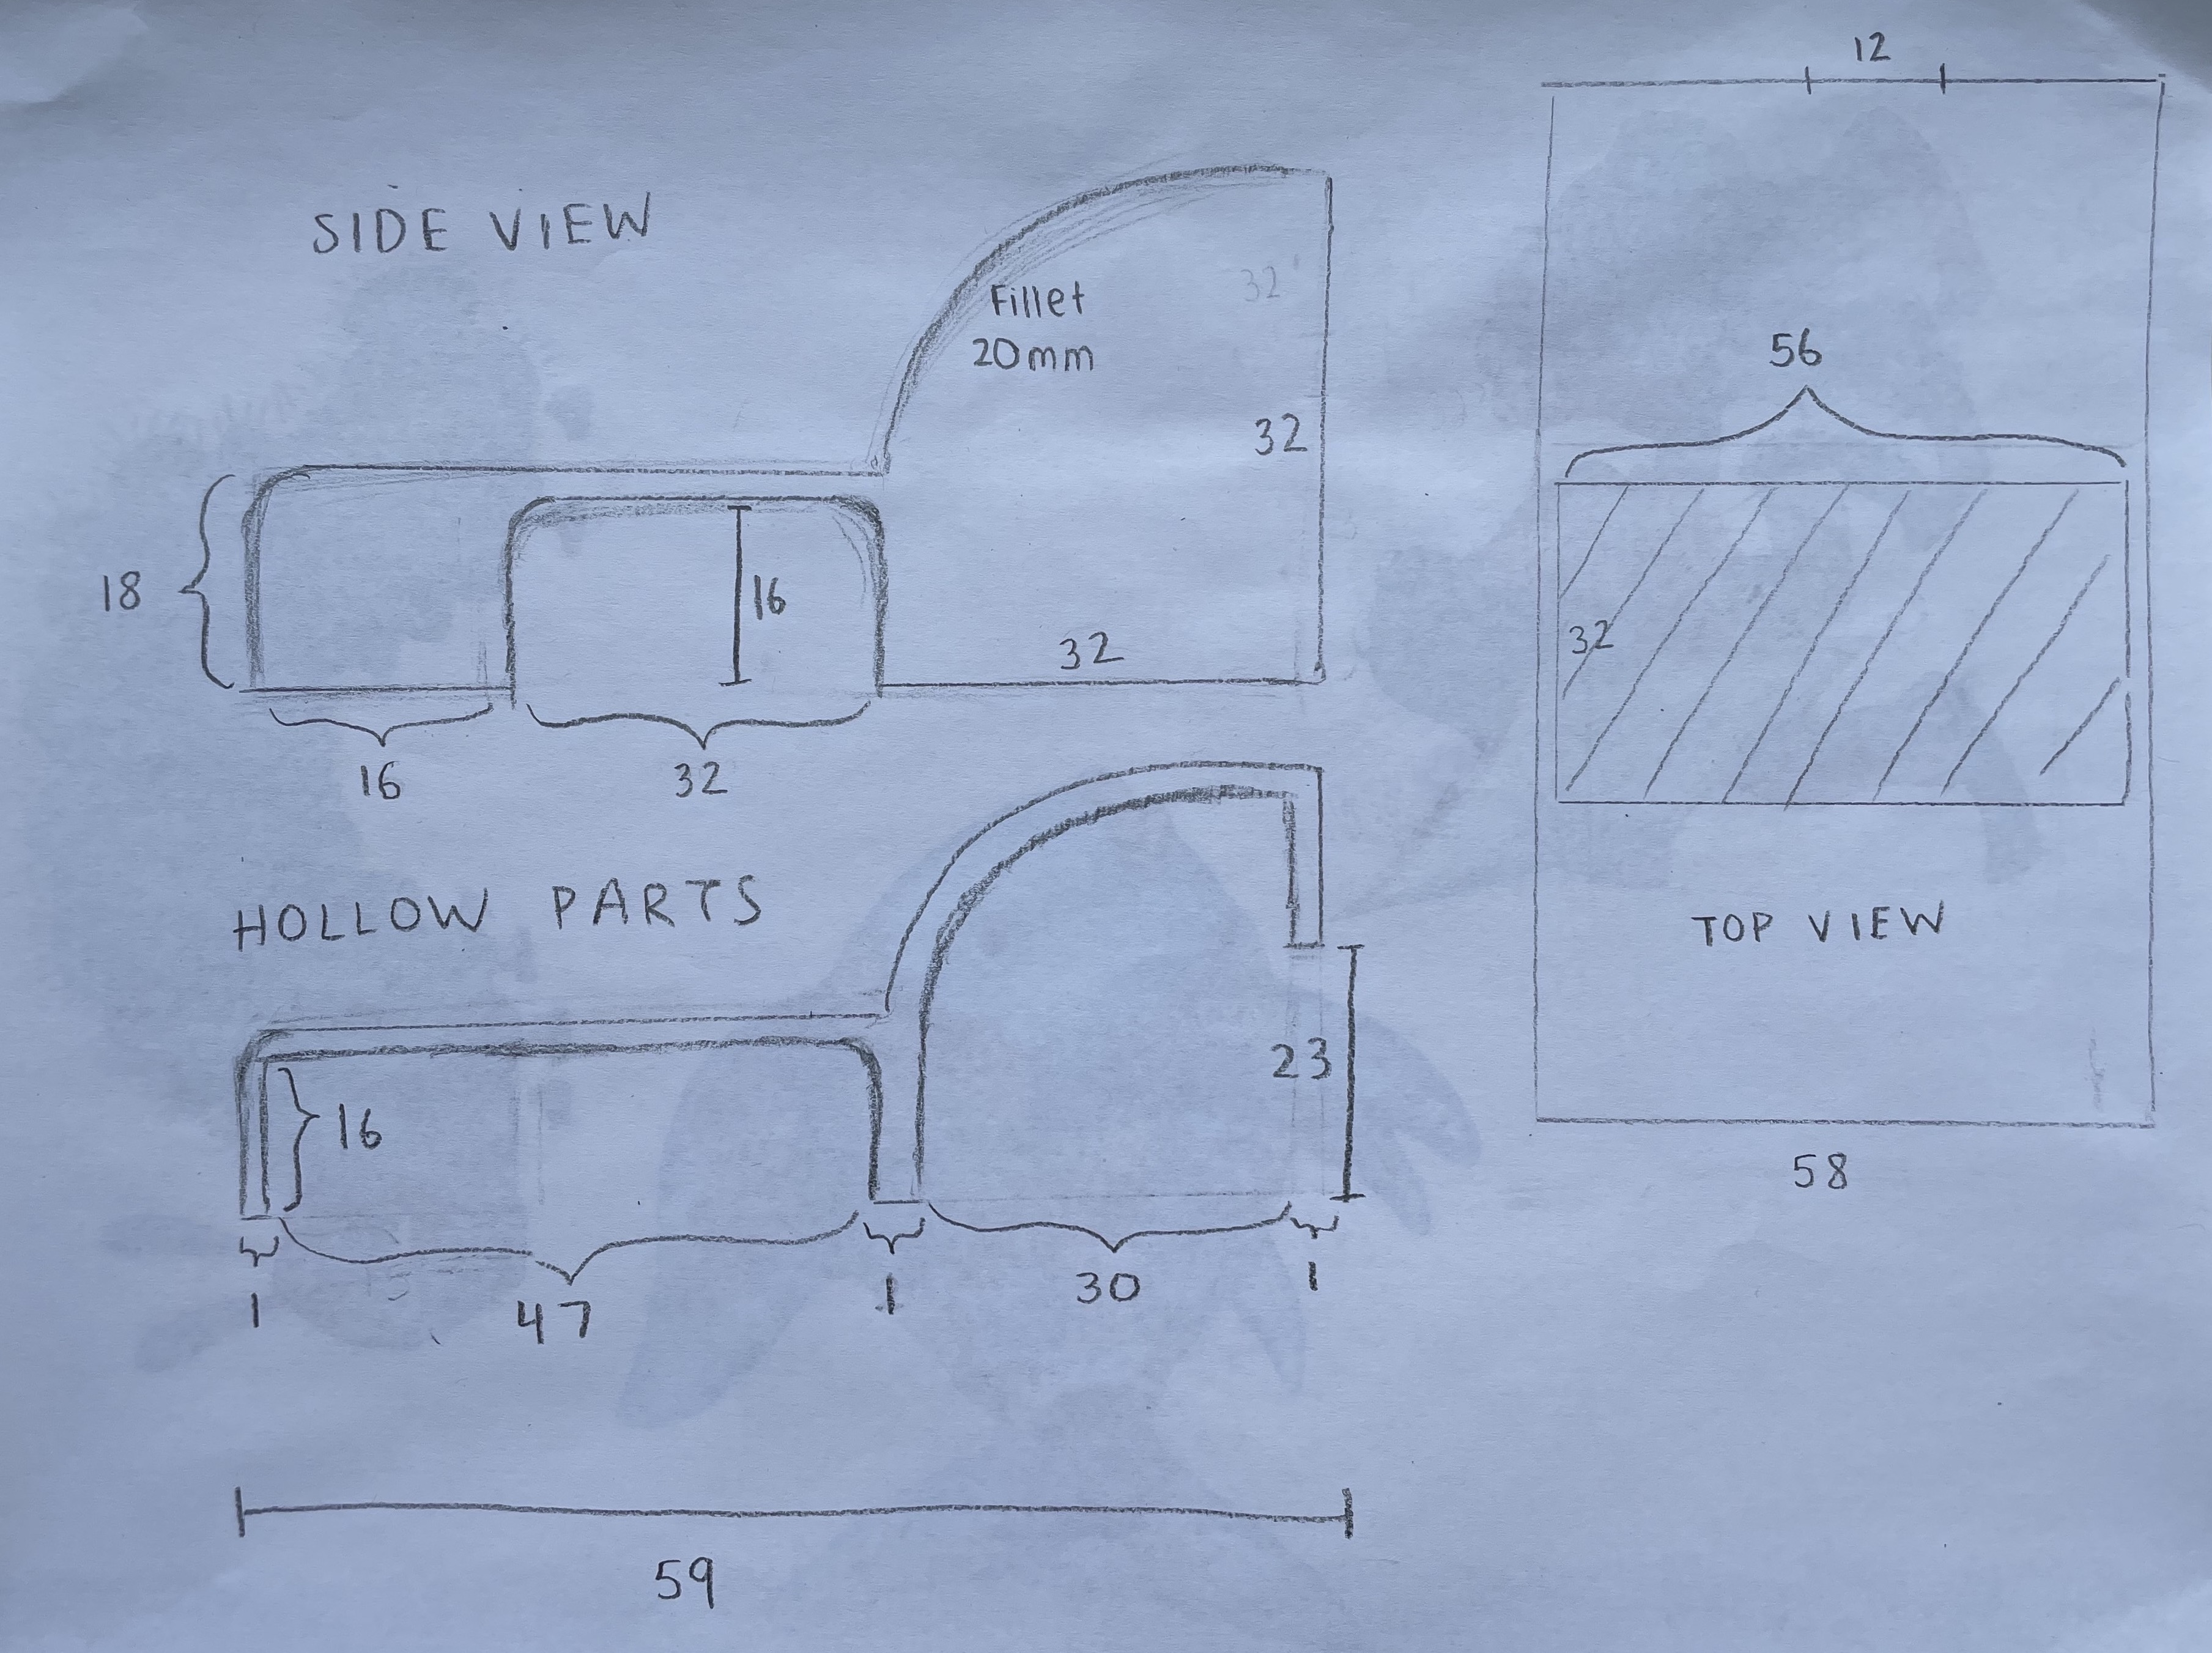 SIDE VIEW
Fillet
20mm
32
32
18
16
32
16
32
HOLLOW PARTS
16
23
1
47
1
30
1
59
12
56
32
TOP VIEW
58